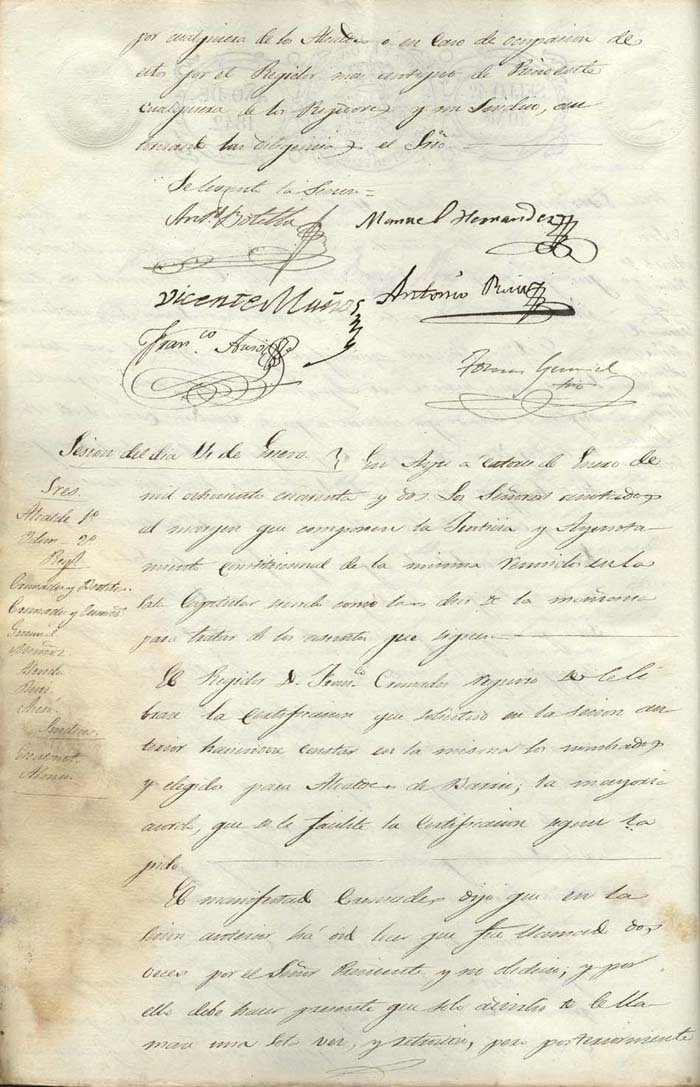 por cualquiera de los Alcaldes o en caso de ocupacion de
estos por el Regidor mas antiguo, de
cualquiera de los Regidores y un Sindico, au
torizando las diligencias el Srio.
Se levantó la Sesion=
Antº Botella
Manuel Hernandez
Vicente Muños
António
Fran.co
Tomas
Srio
Sesion del dia 14 de Enero
En Aspe á catorce de Enero de
mil ochocientos cuarenta y dos los Señores anotados
al margen que componen la Justicia y Ayunta
miento Constitucional de la misma reunidos en la
Sala Capitular siendo como las diez de la mañana
para tratar de los asuntos que siguen
Sres.
Alcalde 1º
Idem 2º
Reg.s
Cremades y Botella
Cremades y
Muñoz
Sindicos
El Regidor D. Franco Cremades requirio se le li
brase la Certificacion que solicitó en la sesion an
terior haciendose constar en la misma los nombrados
y elegidos para Alcaldes de Barrio; la mayoria
acordó, que se le facilite la Certificacion segun la
pide.
El manifestado Cremades dijo que en la
sesion anterior há oido leer que fue llamado dos
veces por el Señor Presidente y no
ello debe hacer presente que solo se le lla
mase una sola vez, y pero posteriormente